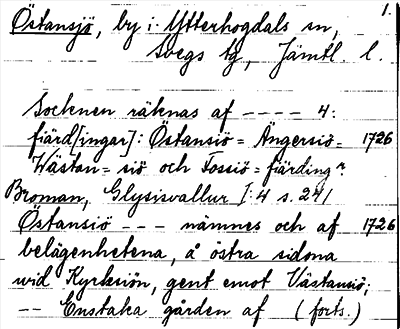 1.
Östansjö, by i Ytterhogdals sn,
Svegs tg, Jämtl. l.
Socknen räknas af ---- 4:
fjärd[ingar]: Östansiö= Ängersiö= 1726
Wästan= siö och Fossiö= fiärdingr.
Broman, Glysisvallur I:4 s. 241
Östansiö --- nämnes och af 1726
belägenhetena, å östra sidona
wid Kyrksiön, gent emot Västansiö;
-- Enstaka gården af (forts.)